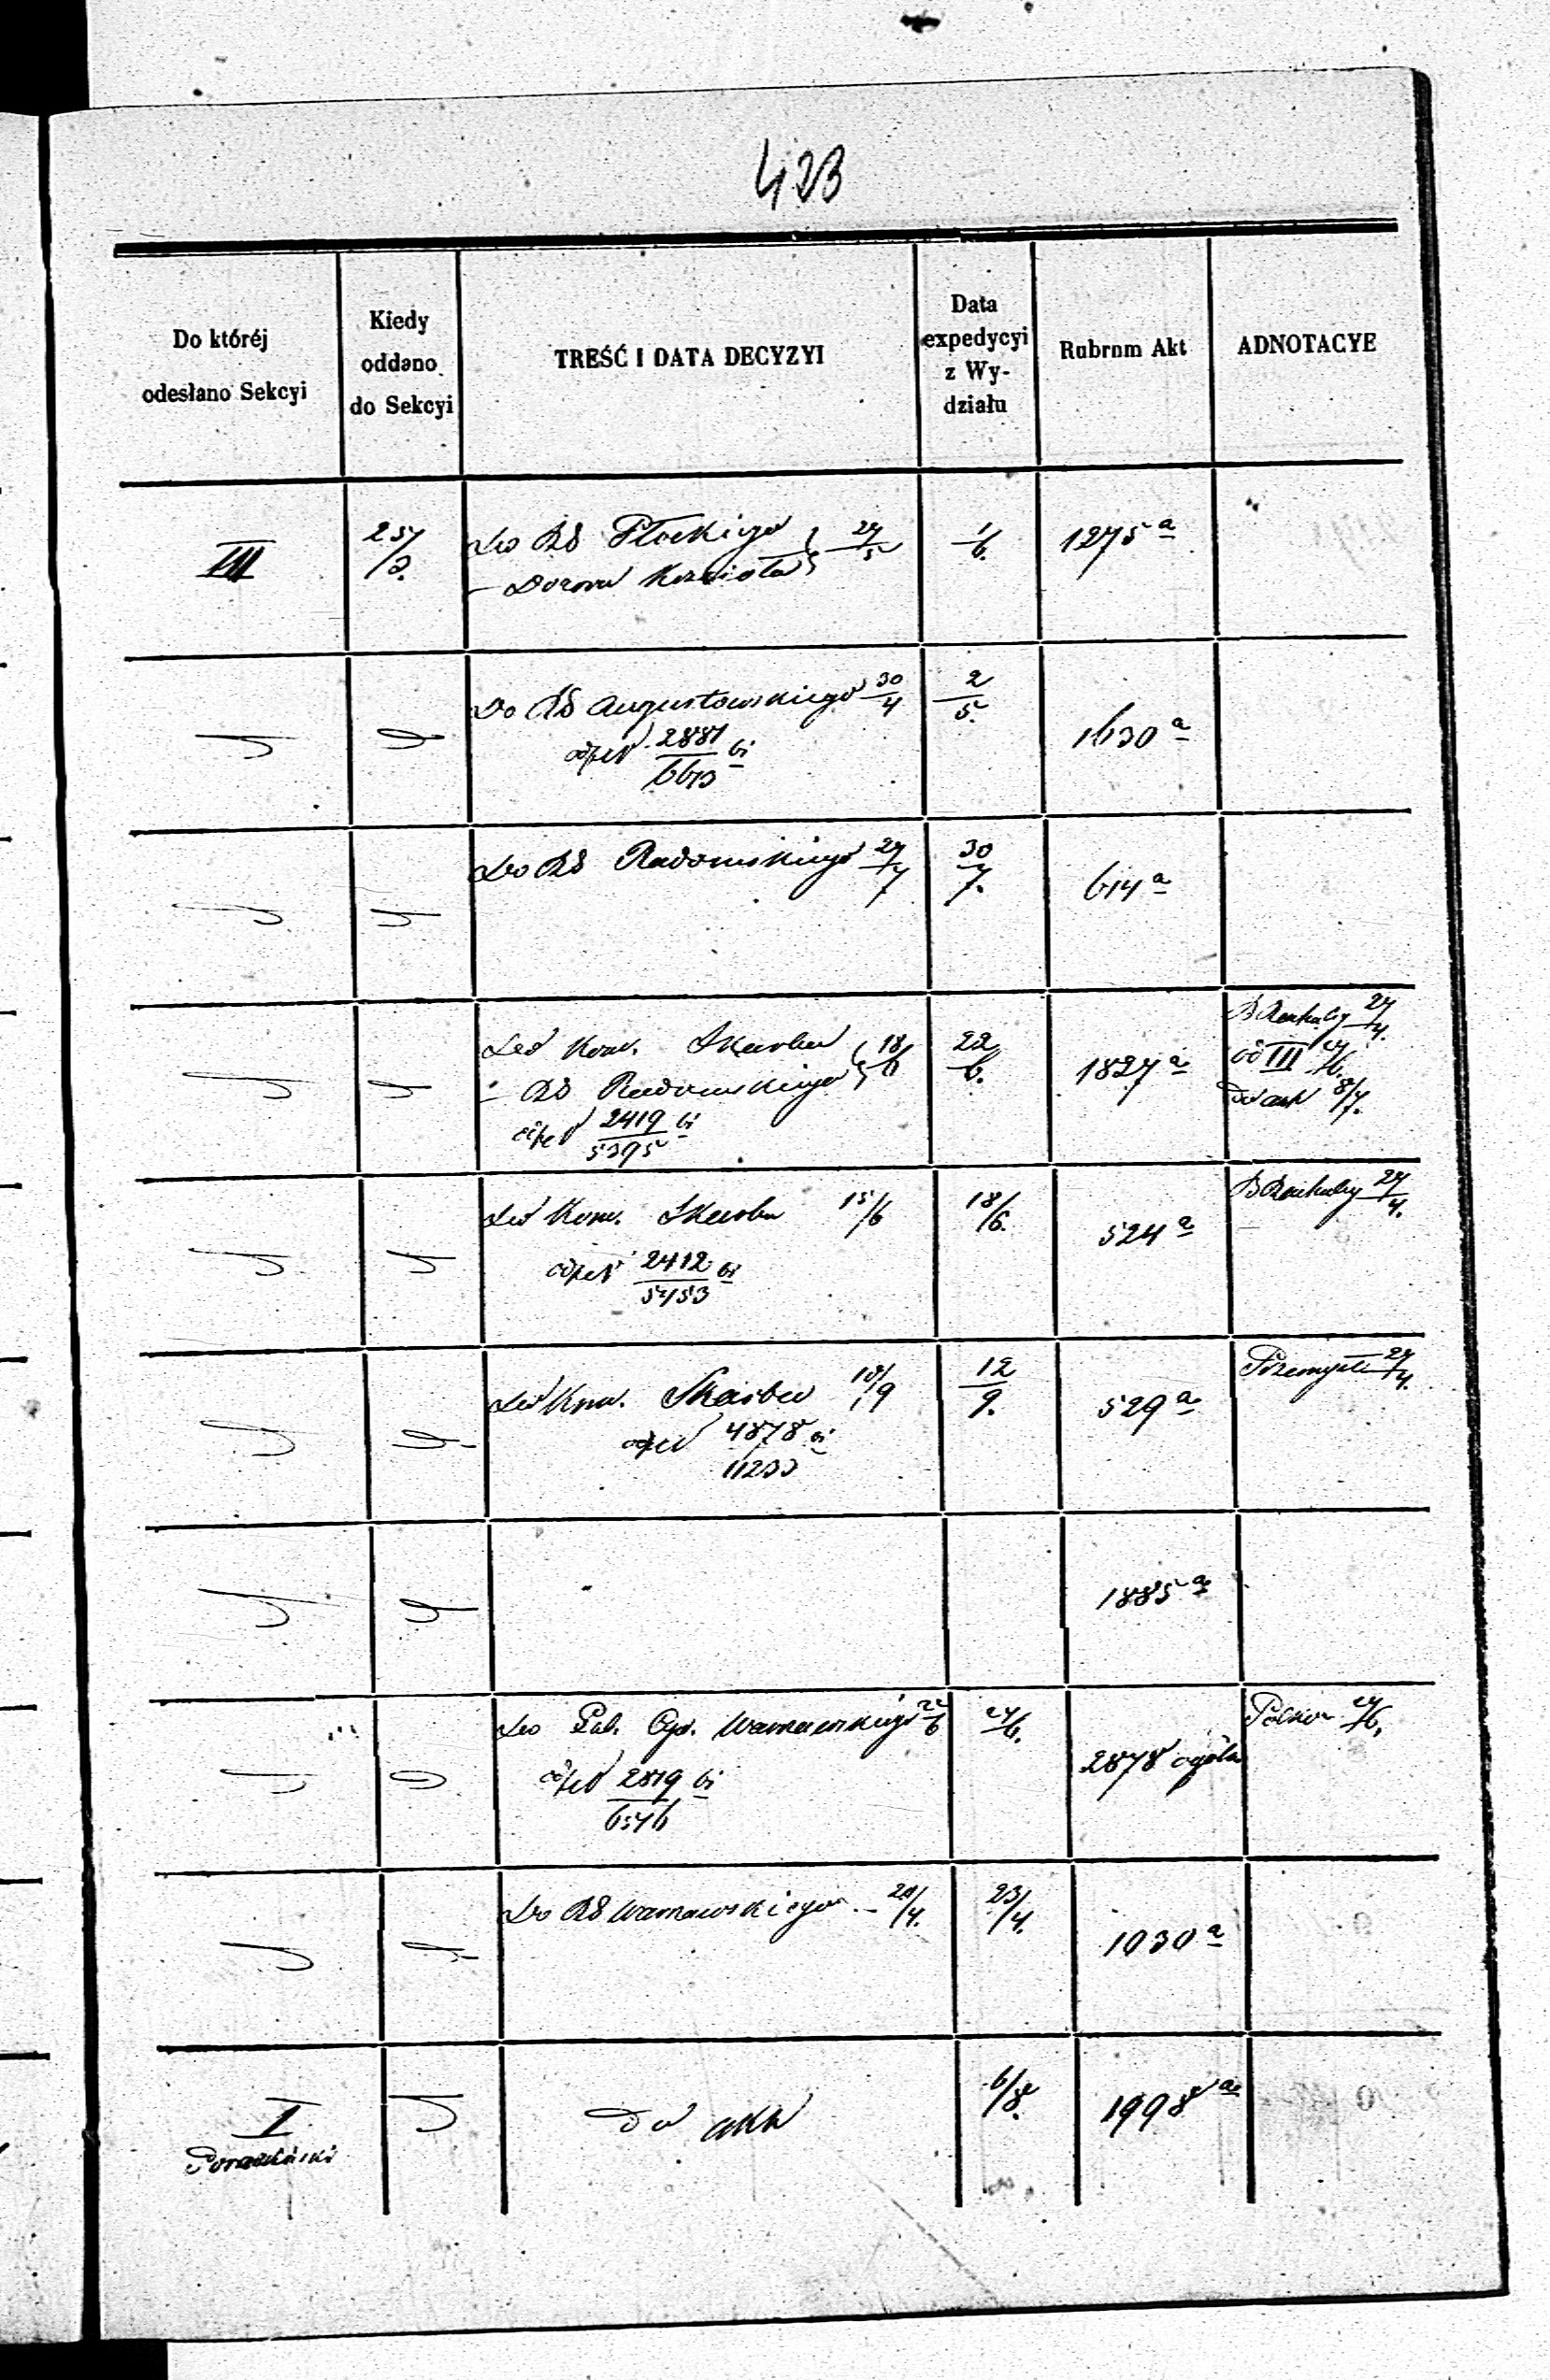 423
Do któréj odesłano Sekcyi
Kiedy oddano do Sekcyi
TREŚĆ I DATA DECYZYI
Data expedycyi z Wydziału
Rubrum Akt
ADNOTACYE
III 25/3. Do RG Płockiego 27/5 1/6. 1275 a
– Dozoru Kościoła
Do RG Augustowskiego 30/4 2/5. 1630 a
2881
6613
Do RG Radomskiego 27/7 30/7. 614 a
Do Kom. Skarbu 18/6 22/6. 1827 a 27/4.
" RG Radomskiego od III
2419 Do akt 8/7.
5395
Do Kom. Skarbu 15/6 18/6. 524 a 27/4.
2412
5453
Do Kom. Skarbu 10/9 12/9. 529 a 27/4.
4878
11233
1885 a
Do Warszawskiego 22/6 24/6. 2878 ogóln
2819
6546
Do RG Warszawskiego 20/4. 23/4. 1030 a
I Do akt 6/8. 1998 a